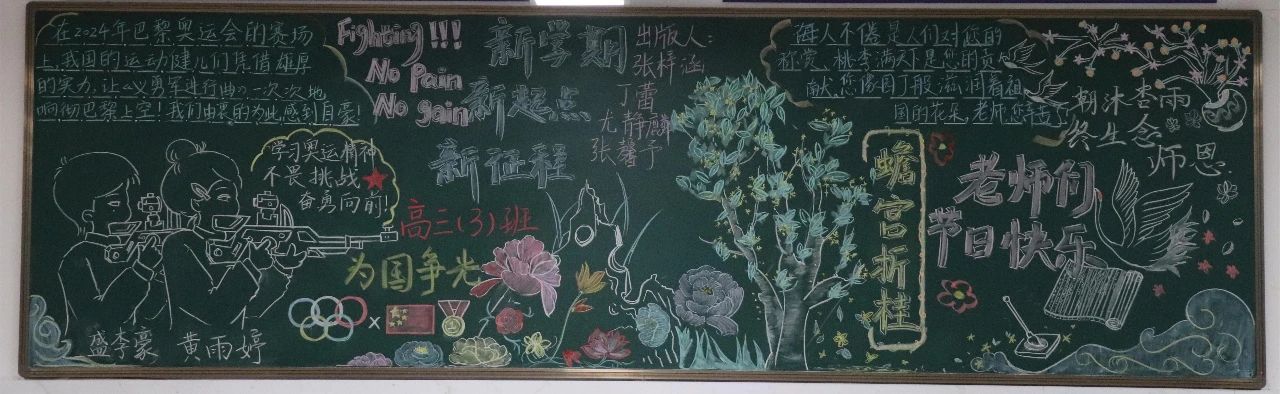 在2024年巴黎奥运会的赛场
上,我国的运动健儿们凭借雄厚
的实力,让《义勇军进行曲》一次次地
响彻巴黎上空!我们由衷的为此感到自豪!
Fighting!!!
No Pain
No gain
学习奥运精神
不畏挑战
奋勇向前!
盛李豪 黄雨婷
新学期
新起点
新征程
高三(3)班
为国争光
出版人:
张梓涵
丁蕾
尤静麟
张馨予
诲人不倦是人们对您的
称赏,桃李满天下是您的贡
献,您像园丁般滋润着祖
国的花朵,老师,您辛苦了!
蟾宫折桂
朝沐杏雨
终生念
师恩
老师们
节日快乐